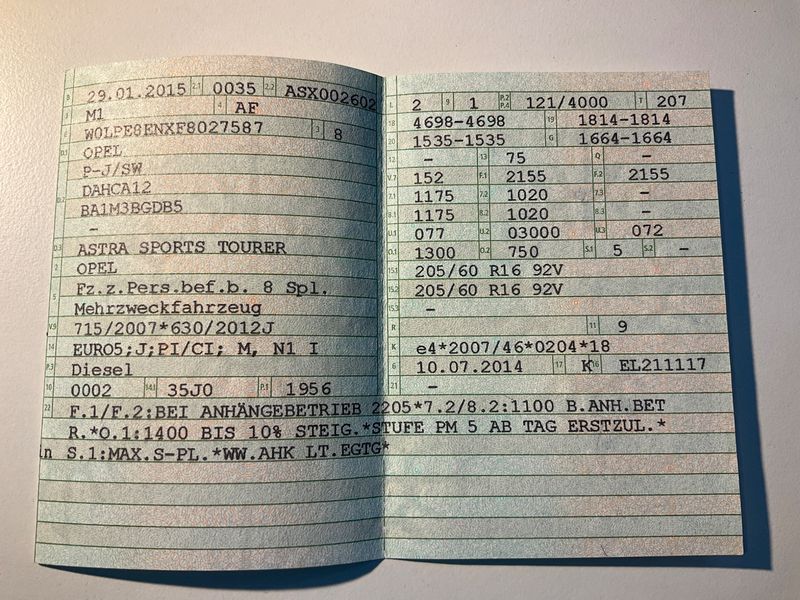 B 29.01.2015 2.1 0035 2.2 ASX002602
J M1 4 AF
E W0LPE8ENXF8027587 3 8
D.1 OPEL
P-J/SW
D.2 DAHCA12
BA1M3BGDB5
-
D.3 ASTRA SPORTS TOURER
2 OPEL
5 Fz.z.Pers.bef.b. 8 Spl.
Mehrzweckfahrzeug
V.9 715/2007*630/2012J
14 EURO5;J;PI/CI; M, N1 I
P.3 Diesel
10 0002 14.1 35J0 P.1 1956
L 2 9 1 P.2 P.4 121/4000 T 207
18 4698-4698 19 1814-1814
20 1535-1535 G 1664-1664
12 - 13 75 Q -
V.7 152 F.1 2155 F.2 2155
7.1 1175 7.2 1020 7.3 -
8.1 1175 8.2 1020 8.3 -
U.1 077 U.2 03000 U.3 072
O.1 1300 O.2 750 S.1 5 S.2 -
15.1 205/60 R16 92V
15.2 205/60 R16 92V
15.3 -
R 11 9
K e4*2007/46*0204*18
6 10.07.2014 17 K 16 EL211117
21 -
22 F.1/F.2:BEI ANHÄNGEBETRIEB 2205*7.2/8.2:1100 B.ANH.BET
R.*O.1:1400 BIS 10% STEIG.*STUFE PM 5 AB TAG ERSTZUL.*
S.1:MAX.S-PL.*WW.AHK LT.EGTG*